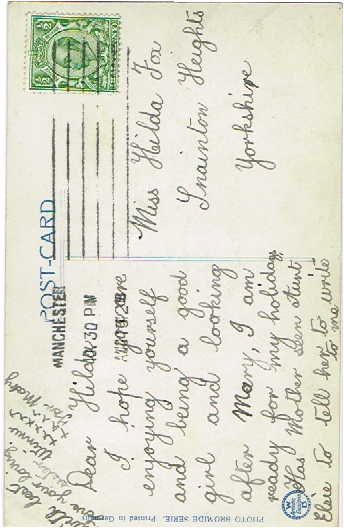 POST-CARD
MANCHESTER
30 PM
Miss Hilda Fox
Snainton Heights
Yorkshire
Dear Hilda
I hope you are
enjoying yourself
and being a good
girl and looking
after Mary, I am
ready for my holiday,
Has Mother seen Aunt
Elsie to tell her to write
to me
with best
love your loving
sister
Winnie
xxxxx
xxxxx
PHOTO BROMIDE SERIE. Printed in Germany